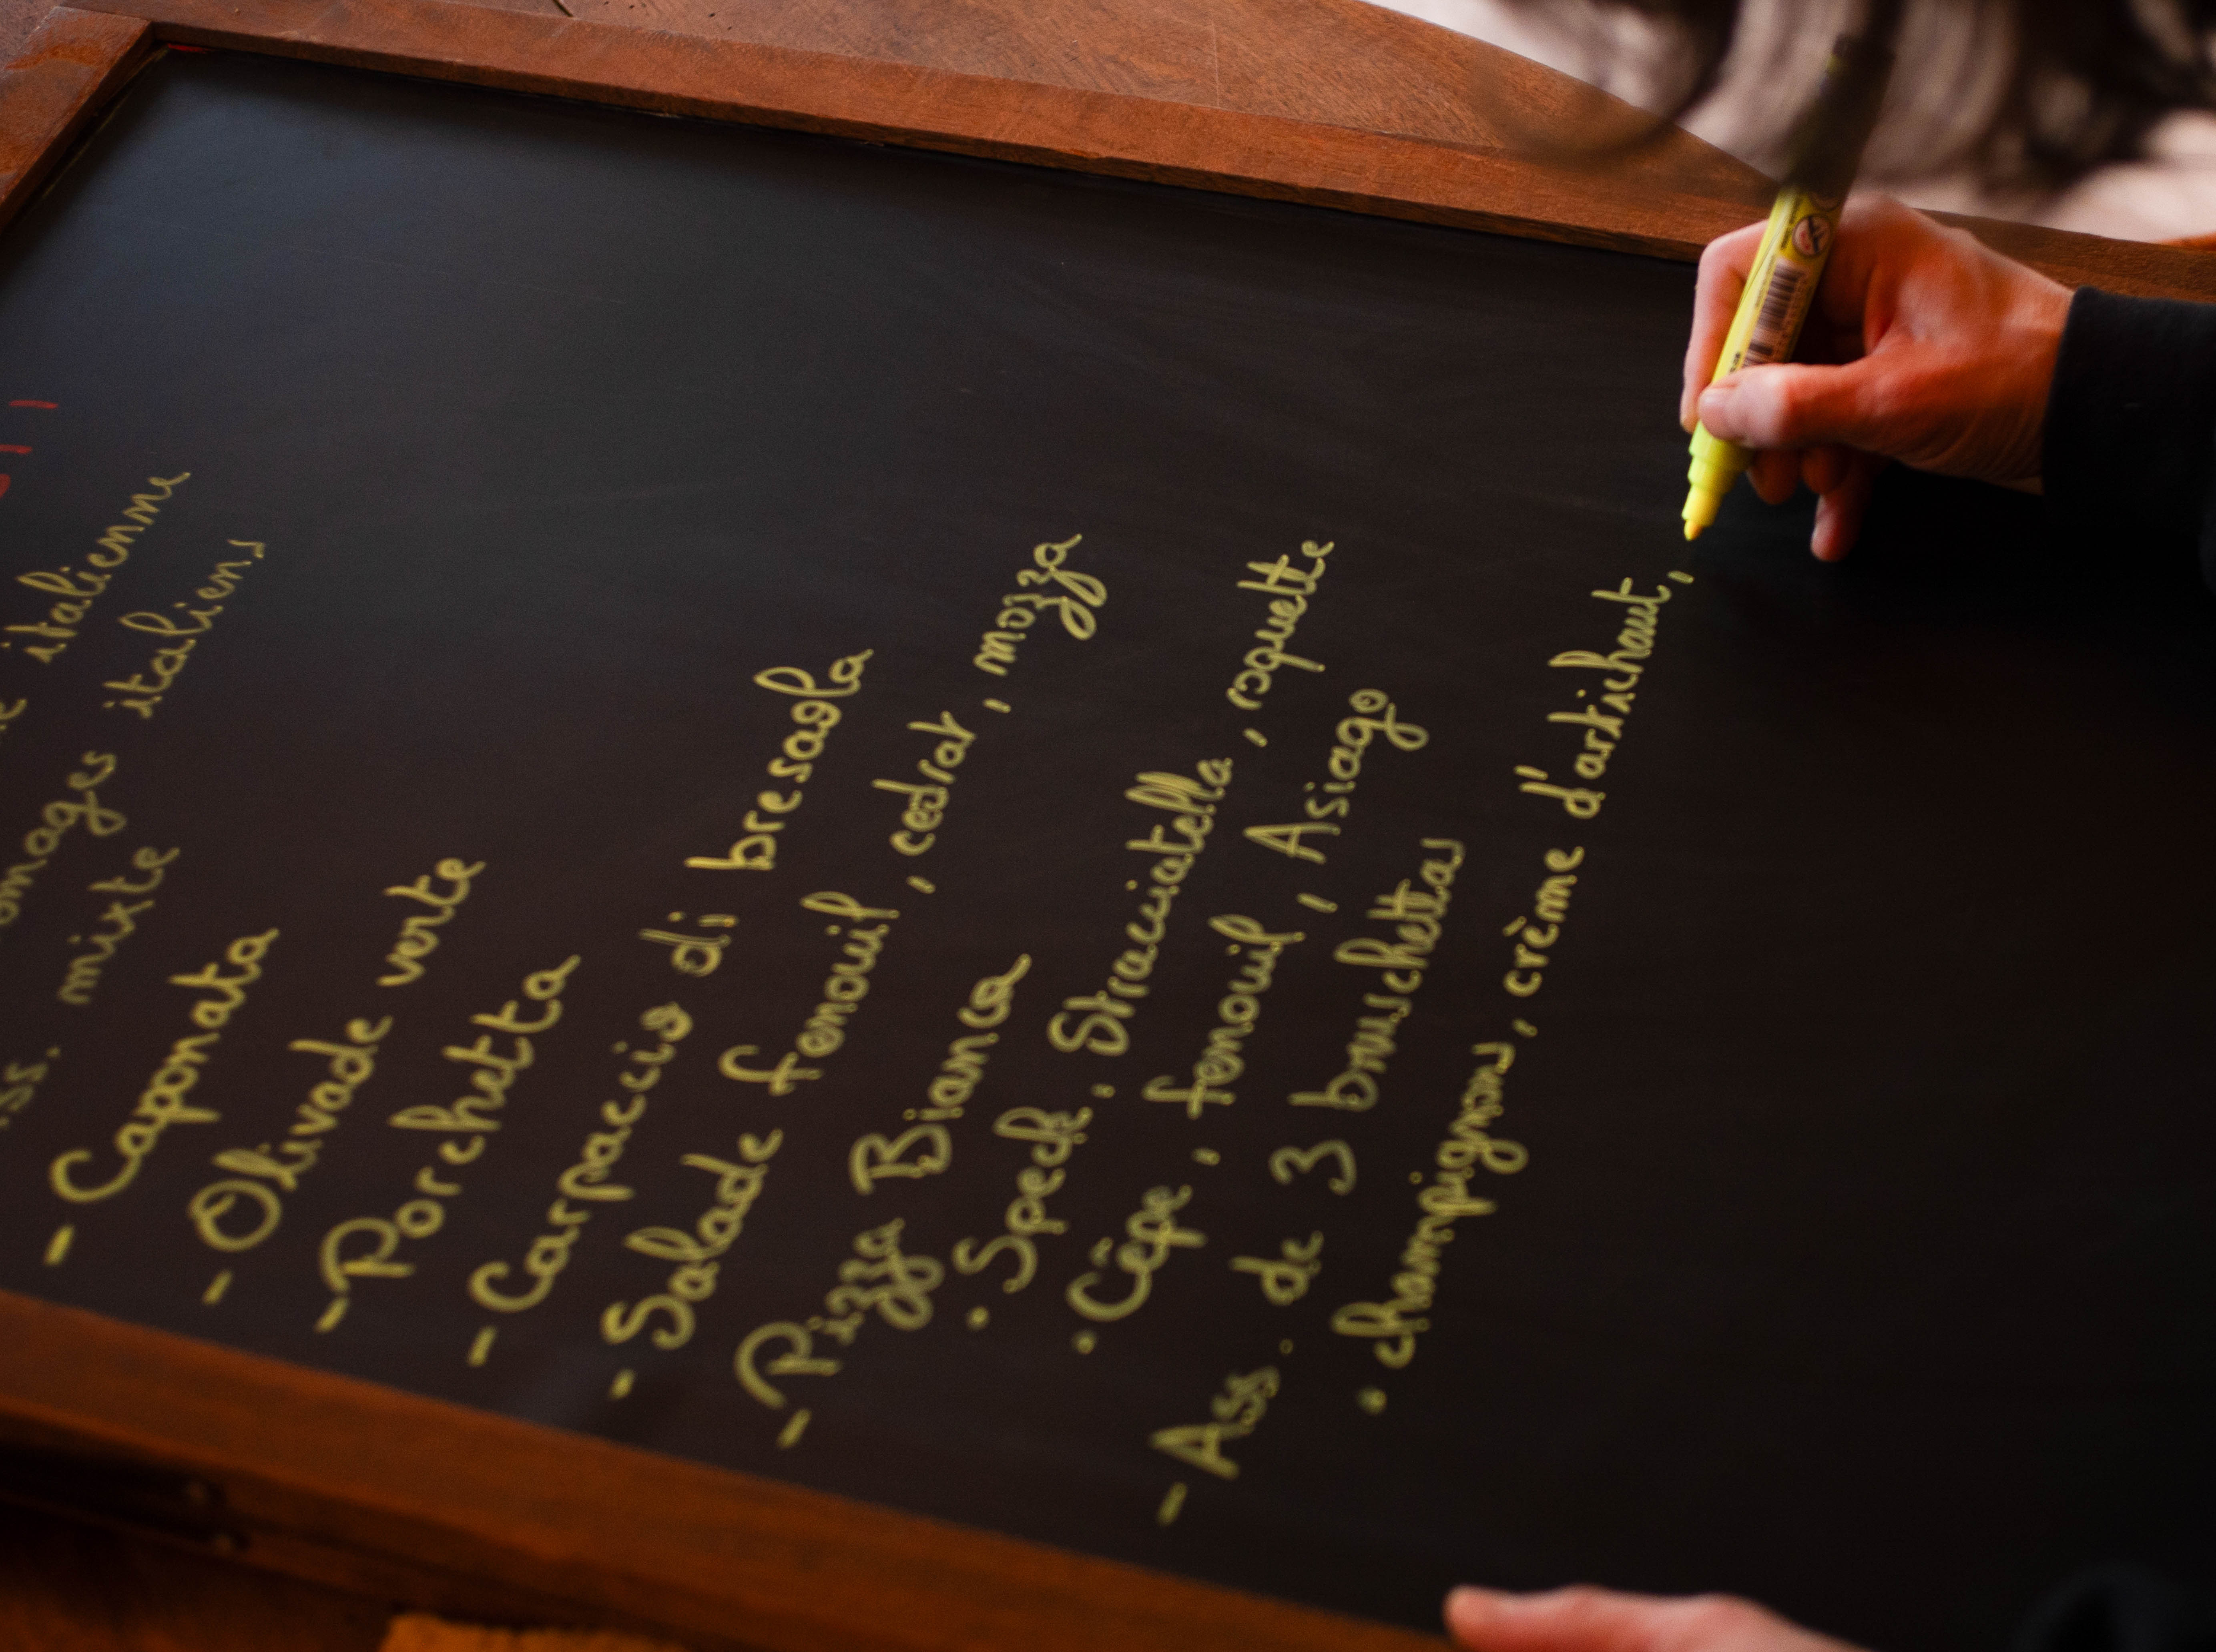 italienne
italiens
mixte
- Caponata
- Olivade verte
- Porchetta
- Carpaccio di bresaola
- Salade fenouil, cedrat, mozza
- Pizza Bianca
. Speck, Stracciatella, roquette
. Cèpe, fenouil, Asiago
- Ass. de 3 bruschettas
. champignons, crème d'artichaut,